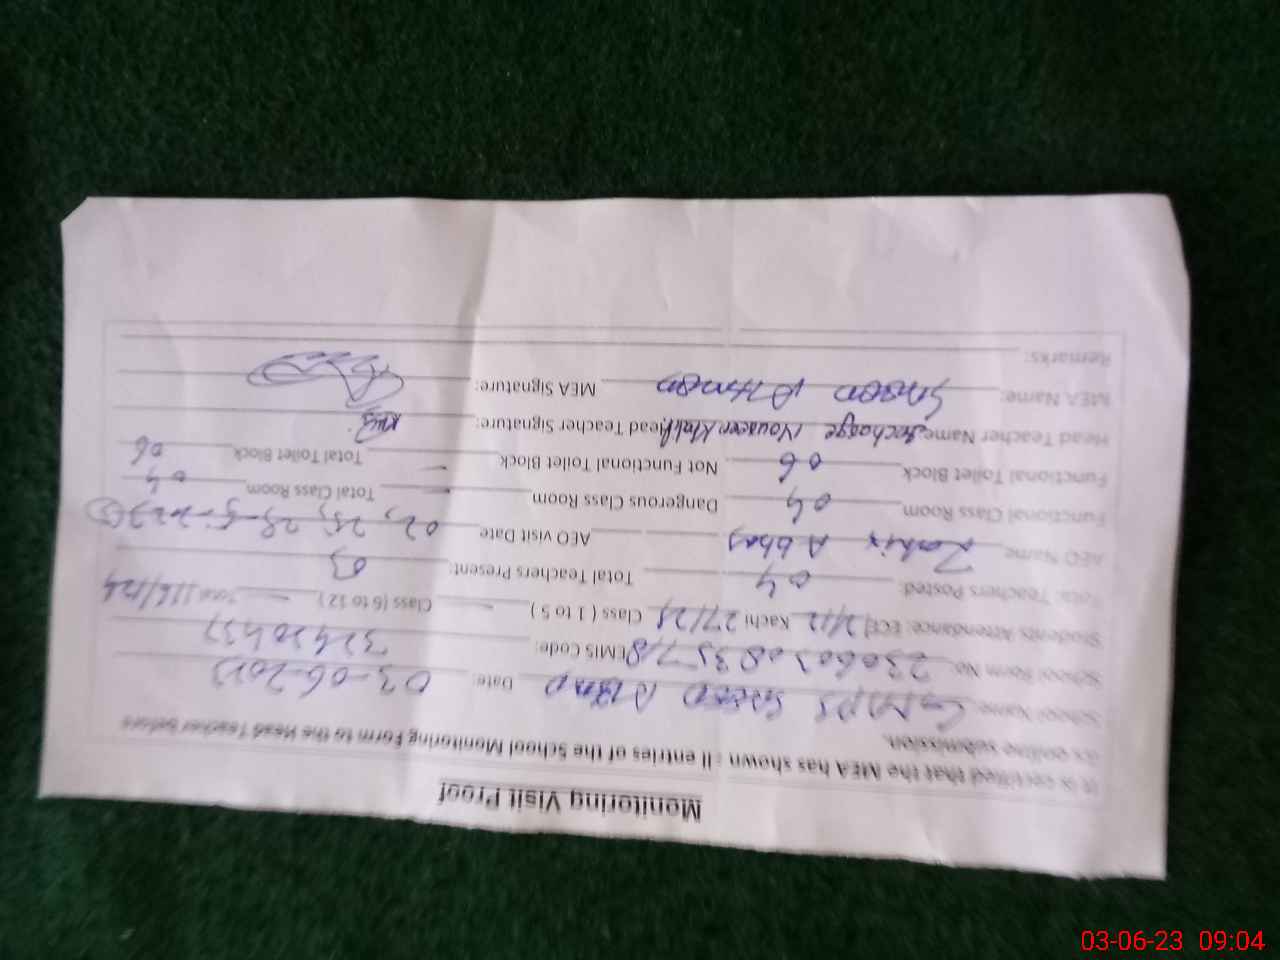 Monitoring Visit Proof
It is certified that the MEA has shown all entries of the School Monitoring Form to the Head Teacher before
its online submission.
School Name: GMPS Saeed Abad Date: 03-06-2023
School Form No: EMIS Code: 32420437
Students Attendance: ECE Kachi 27/28 Class (1 to 5) - Class (6 to 12) - Total 116/124
Total Teachers Posted: 04 Total Teachers Present: 03
AEO Name Zahir Abbas AEO visit Date 02, 25, 29-5-2023
Functional Class Room 04 Dangerous Class Room - Total Class Room 04
Functional Toilet Block 06 Not Functional Toilet Block - Total Toilet Block 06
Head Teacher Name Incharge Head Teacher Signature:
MEA Name: MEA Signature:
Remarks:
03-06-23 09:04